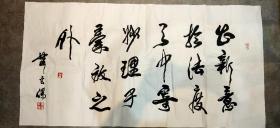 出新意
於法度
之中寄
妙理于
豪放之
外